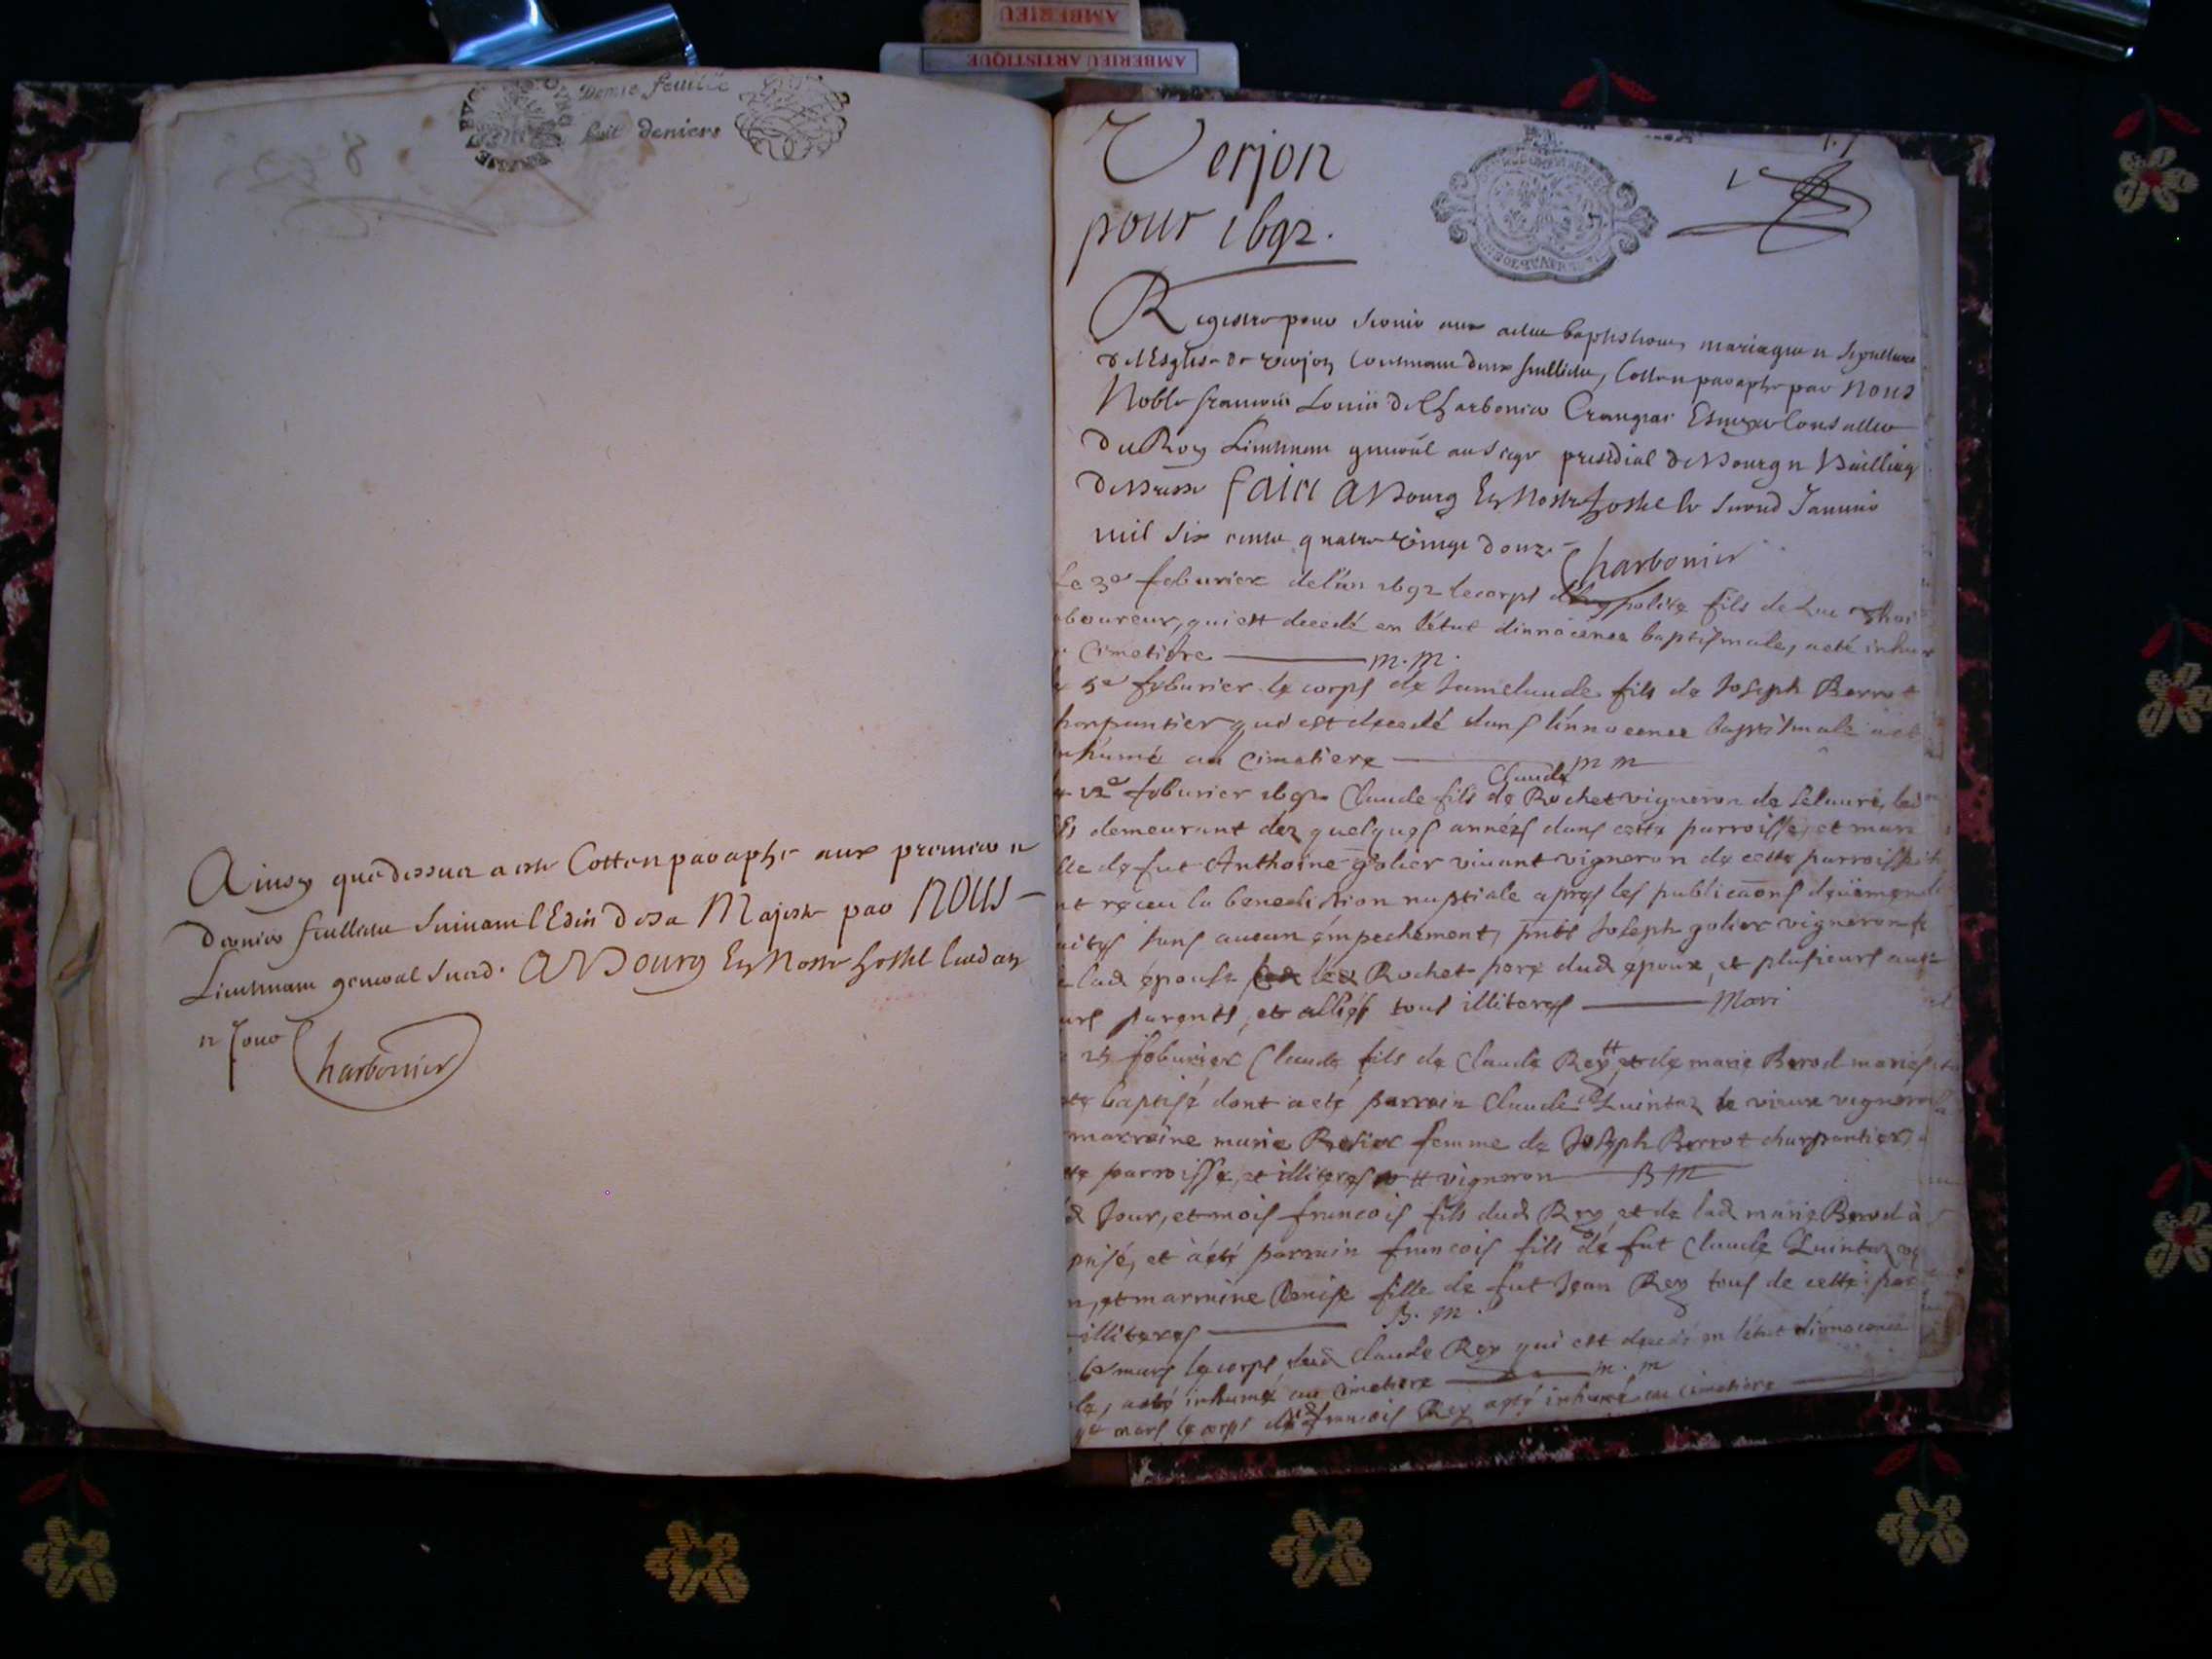 AMBERIEU
AMBERIEU ARTISTIQUE
Demie feuille
huit deniers
Ainsy que dessus a esté Cotté et paraphé aux premier et
dernier feuillets suivant l'Edit de sa Majesté par Nous
Lieutenant general susd. A Bourg En Nostre hostel lesd an
et jour Charbonier
Verjon
pour 1692.
Registre pour servir aux actes baptistaires, mariages et sepultures
de l'Esglise de Verjon Contenant deux feuillets, Cotté et paraphé par Nous
Noble francois Louis de Charbonier Crangeac Escuyer Conseiller
du Roy Lieutenant general au siege presidial de Bourg et Bailliage
de Bresse fait A Bourg En Nostre hostel le second Janvier
mil six cents quatre vingt douze Charbonier
Le 3e feburier de l'an 1692 le corps fils de Luc
boureur, qui est decedé en l'état d'innocence baptismale, a eté inhum
cimetiere m.m.
5e feburier le corps de fils de Joseph Berrot
harpantier qui est decedé dans l'innocence baptismale a eté
inhumé au cimetiere m m
12e feburier 1692 Claude fils de Claude Rochet vigneron de led
demeurant dez quelques années dans cette parroisse, et mari
lle de fut Anthoine golier vivant vigneron de cette parroisse
nt receu la benediction nuptiale apres les publicaons deüement
sans aucun émpechement, pnts Joseph golier vigneron
lad épouse led Rochet pere dud époux, et plusieurs aut
urs parents, et alliés tous illiteres Mari
25 feburier Claude fils de Claude Rey # et de marie Berod mariés
eté baptisé dont a eté parrain Claude Quintaz le vieux vigneron
marreine marie femme de Joseph Berrot charpantier
te parroisse, et illiteres # vigneron B M
d jour, et mois francois fils dud Rey, et de lad marie Berod à
ptisé, et à eté parrain francois fils de fut Claude Quintaz
n, et marreine Denise fille de fut Jean Rey tous de cette par
illiteres B. m.
6e mars le corps dud Claude Rey qui est decedé en l'état d'innocence
le, a eté inhumé au cimetiere m. m
mars le corps dud francois Rey a eté inhumé au cimetiere